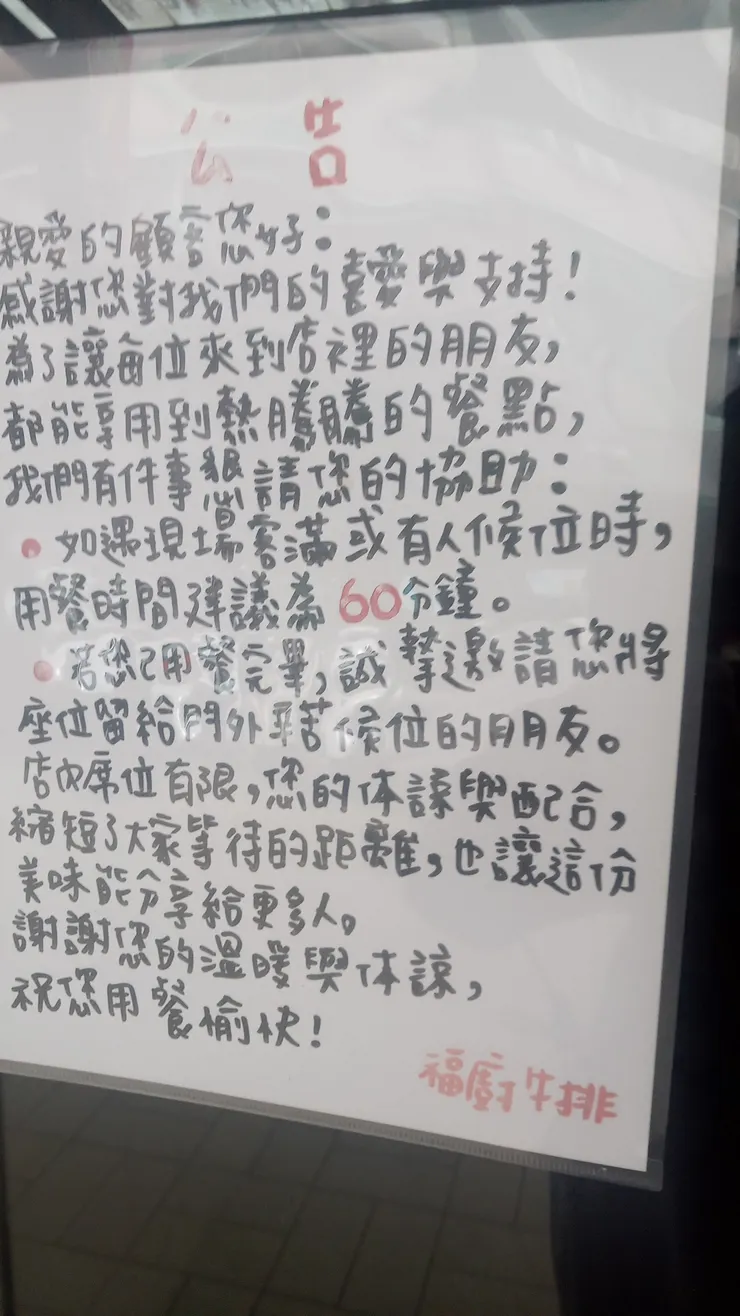 公告
親愛的顧客您好：
感謝您對我們的喜愛與支持！
為了讓每位來到店裡的朋友，
都能享用到熱騰騰的餐點，
我們有件事懇請您的協助：
• 如遇現場客滿或有人候位時，
用餐時間建議為60分鐘。
• 若您已用餐完畢，誠摯邀請您將
座位留給門外辛苦候位的朋友。
店內席位有限，您的体諒與配合，
縮短了大家等待的距離，也讓這份
美味能分享給更多人。
謝謝您的溫暖與体諒，
祝您用餐愉快！
福廚牛排